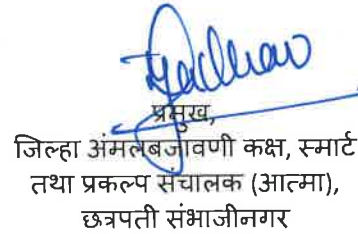 प्रमुख,
जिल्हा अंमलबजावणी कक्ष, स्मार्ट
तथा प्रकल्प संचालक (आत्मा),
छत्रपती संभाजीनगर